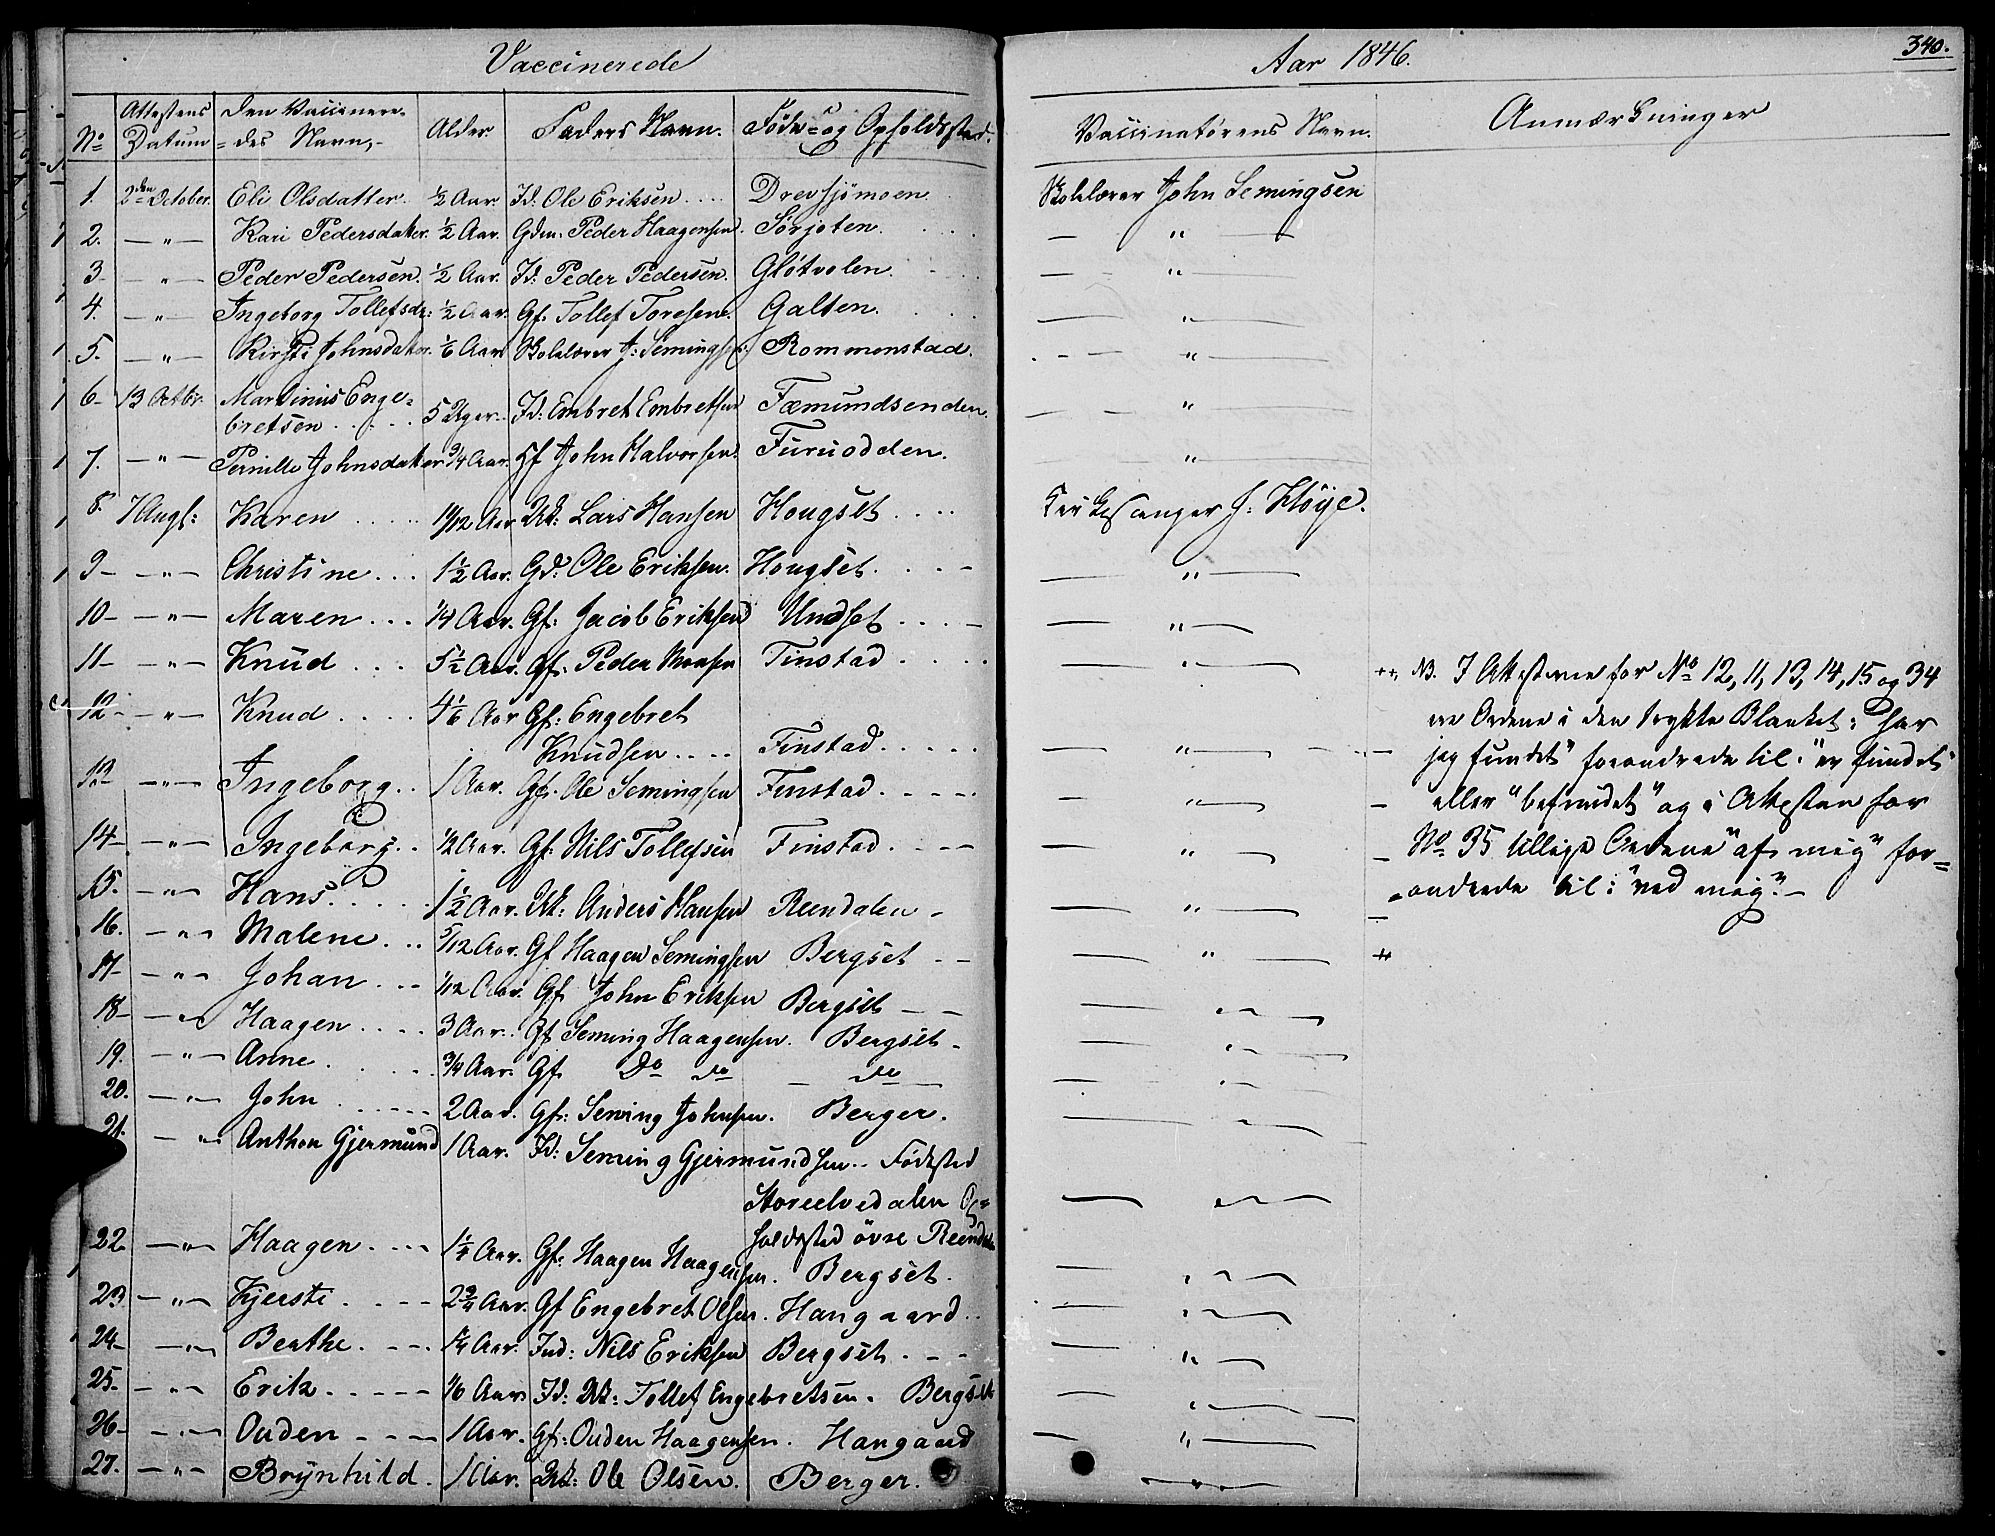 Vaccinerede
Aar 1846.
340.
No
Attestens Datum
Den Vaccineredes Navn
Alder
Faders Navn.
Føde- og Opholdssted.
Vaccinatørens Navn.
Anmærkninger
1. 2den October. Eli Olsdatter. ½ Aar. Id: Ole Eriksen .... Drevsjømoen Skolelærer John Semingsen
2. — " — Kari Pedersdatter. ½ Aar. Gdm: Peder Haagensen. Sørjoten. — " —
3 — " — Peder Pedersen. ½ Aar. Id: Peder Pedersen. Gløtvolen. — " —
4. — " — Ingeborg Tollefsdr: ½ Aar. Gf. Tollef Toresen. Galten. — " —
5. — " — Kirsti Johnsdatter. 1/6 Aar Skolelærer J: Semingsen Rommenstad. — " —
6- 13 Octbr. Martinius Enge-
bretsen ..... 5 Uger. Id: Embret Embretsen Fæmundsenden. — " —
7. — " — Pernille Johnsdatter ¾ Aar. Hf John Halvorsen. Furuodden. — " —
8. 7 Augs: Karen .... 11/12 Aar Lars Hansen Hougset .... Kirkesanger J: Kløye.
9- — " — Christine ... 1½ Aar. Gd: Ole Eriksen. Hougset. — " —
10- — " — Maren ... ¼ Aar. Gf: Jacob Eriksen Undset .... — " —
11- — " — Knud ... 5½ Aar. Gf: Peder Monsen Finstad .... — " —
12- — " — Knud .... 4 1/6 Aar Gf: Engebret
Knudsen .... Finstad ..... — " —
13- — " — Ingeborg .. 1 Aar. Gf. Ole Semingsen Finstad ..... — " —
14- — " — Ingeborg .. ½ Aar. Gf. Nils Tollefsen Finstad .... — " —
15. — " — Hans ..... 1½ Aar. Anders Hansen Reendalen - — " —
16. — " — Malene ... 5/12 Aar. Gf Haagen Semingsen Bergset - - — " —
17- — " — Johan ... 1/12 Aar. Gf. John Eriksen Bergset - - — " —
18- — " — Haagen .... 3 Aar. Gf Seming Haagensen. Bergset - — " —
19. — " — Anne ..... ¾ Aar. Gf. Do do — do — — " —
20. — " — John ..... 2 Aar. Gf: Seming Johnsen. Berger. — " —
21. — " — Anthon Gjermund 1 Aar. Id: Seming Gjermundsen. Fødested
Storeelvedalen Op-
holdssted øvre Reendal — " —
22 — " — Haagen .... 1¼ Aar. Gf: Haagen Haagensen. Bergset. — " —
23 — " — Kjersti .... 2¾ Aar. Gf Engebret Olsen. Hangaard .. — " —
24- — " — Berthe .... ¼ Aar. Ind: Nils Eriksen Bergset .. - — " —
25. — " — Erik ..... 1/6 Aar Id: Tollef Engebretsen. Bergset — " —
26- — " — Ouden .... 1 Aar. Gf: Ouden Haagensen. Hangaard — " —
27. — " — Brynhild. 1 Aar. Ole Olsen. Berger. — " —
NB. I Attesterne for No 12, 11, 13, 14, 15 og 34
er Ordene i den trykte Blanket: "har
jeg fundet" forandrede til: "er fundet"
eller "befundet" og i Attesten for
No 35 tillige Ordene "af mig" for-
andrede til: "ved mig". —